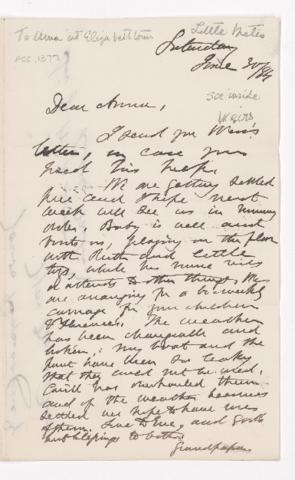 To Anna at Elizabethtown
Little Bates
ACC. 1377
Saturday
June 30/84
see inside
Dear Anna,
I send you
letter, in case you
need his help.
We are getting settled
here and I hope next
week will see us in running
order. Baby is well and
with us, playing on the floor
with Ruth and little
while his nurse
to other things. We
are arranging for a bi-weekly
carriage for our children
The weather
has been changeable and
broken; my boat and the
punt have been so leaky
that they could not be used.
Cecill has overhauled them
and if the weather becomes
settled we hope to have use
of them. Love to Eve, and God's
best blessings to both.
Grandpapa